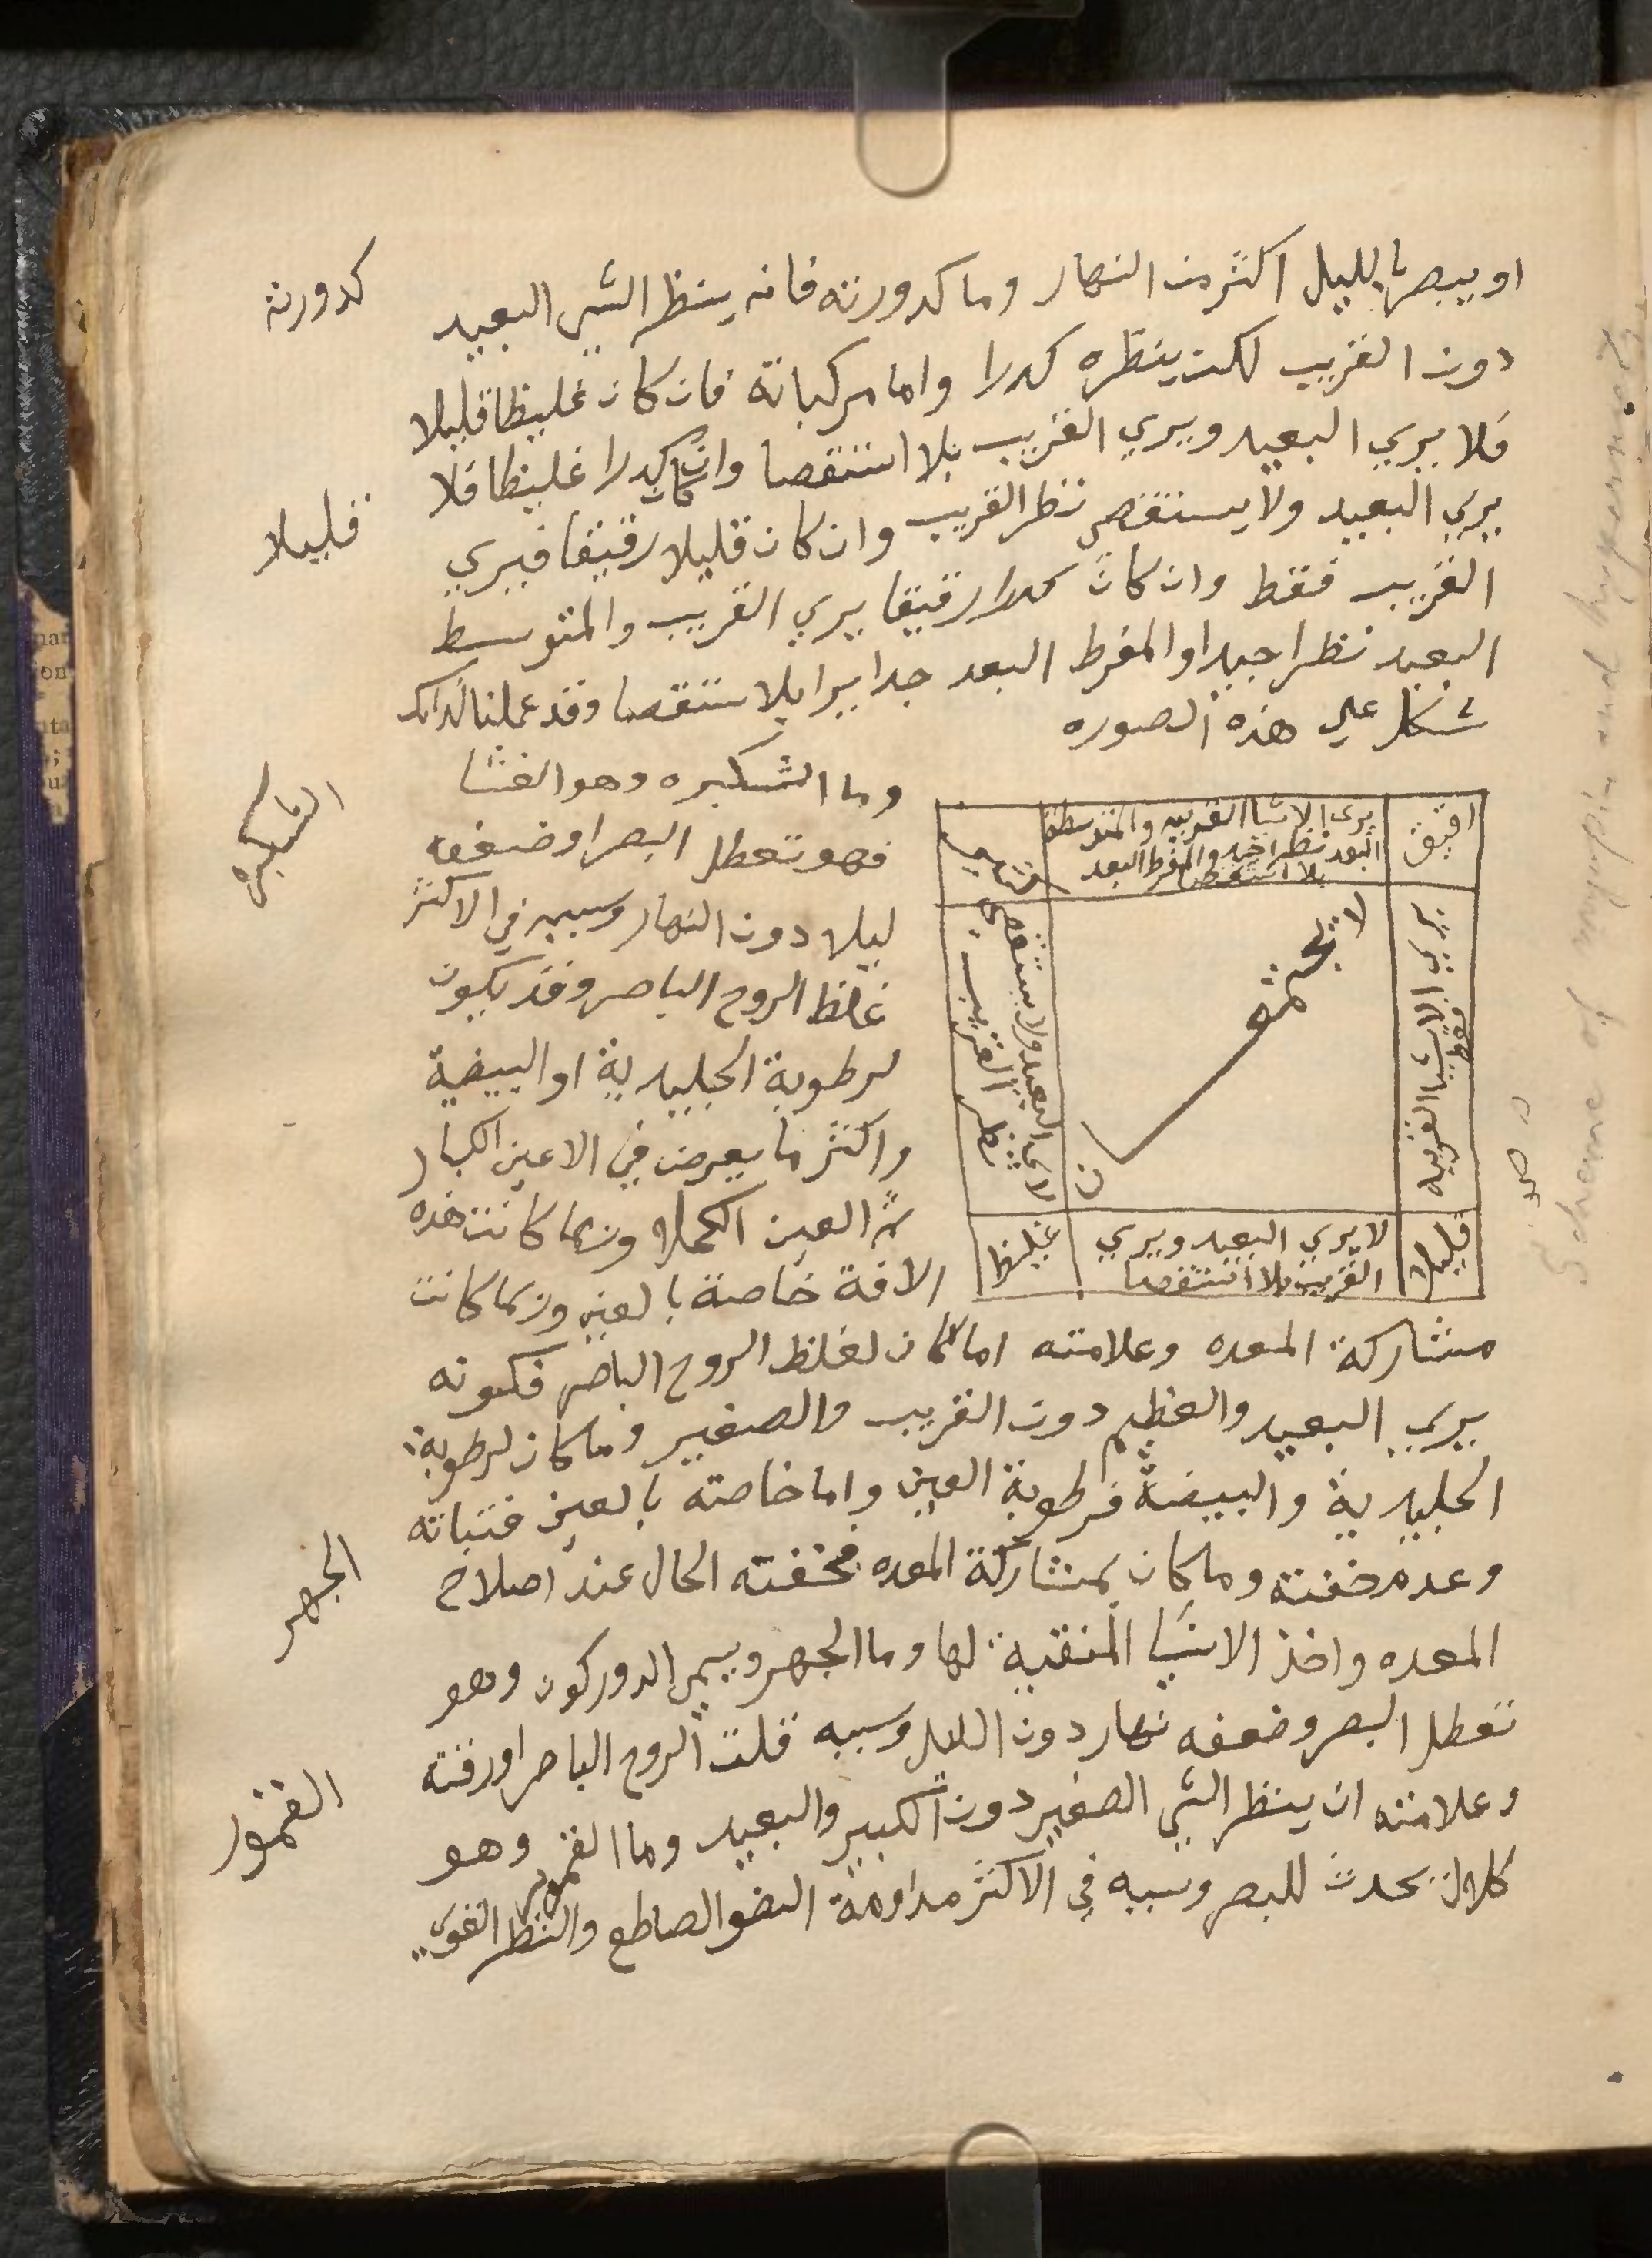 او يبصر بالليل اكثر من النهار وما كدورته فانه ينظر الشي البعيد
كدورته
دون القريب لكن ينظره كدرا واما مركباته فان كان غليظا قليلا
فلا يري البعيد ويري القريب بلا استقصا وان كان كدرا غليظا فلا
يري البعيد ولا يستقصي نظر القريب وان كان قليلا رقيقا فيري
قليلا
القريب فقط وان كان كدرا رقيقا يري القريب والمتوسط
البعيد نظرا جيدا والمفرط البعد جدا يرا بلا ستقصا وقد عملنا لذالك
شكل علي هذه الصوره
يرى الاشيا القريبه والمتوسطه
البعد نظرا جيد والمفرط البعد
بلا استقصا
يري الاشيا القريبه
فقط
لا تجتمعـ
ـان
لا يرى البعيد ولا يستقصي
نظر القريب
قليلا
لا يري البعيد ويري
القريب بلا استقصا
غليظ
وما الشبكيره وهو العشا
الشبكيره
فهو تعطل البصر او ضعفه
ليلا دون النهار وسببه في الاكثر
غلظ الروح الباصر وقد يكون
لرطوبة الجليدية او البيضية
واكثر ما يعرض في الاعين الكبار
ثم العين الكحلا وربما كانت هذه
الافة خاصة بالعين وربما كانت
مشاركة المعده وعلامته اما كان لغلظ الروح الباصر فكونه
يري البعيد والعظيم دون القريب والصغير وما كان لرطوبة
الجليدية والبيضة فرطوبة العين واما خاصته بالعين فثباته
وعدم خفته وما كان بمشاركة المعده فخفته الحال عند اصلاح
الجهر
المعده واخذ الاشيا المنقية لها وما الجهر ويسمي الدوركون وهو
تعطل البصر وضعفه نهار دون الليل وسببه قلت الروح الباصر او رقته
وعلامته ان ينظر الشي الصغير دون الكبير والبعيد وما القمور وهو
القمور
كلال يحدث للبصر وسببه في الاكثر مداومة الضو الصاطع والنظر القوي
Scheme of myopia and hypermet